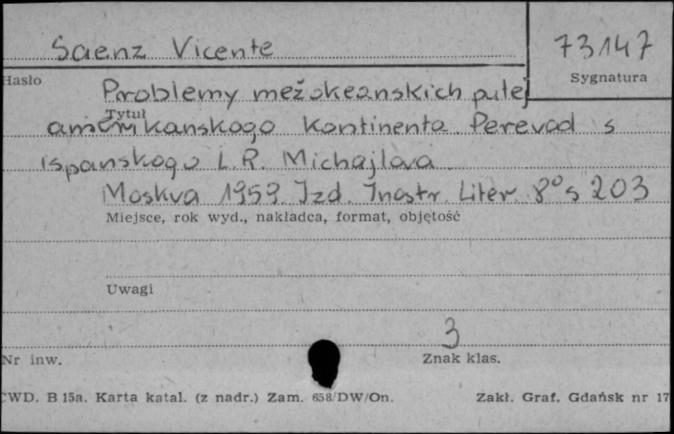 Saenz Vicente
73147
Hasło
Sygnatura
Problemy mežokeanskich putej
Tytuł
amerikanskogo kontinenta. Perevod s
ispanskogo L.R. Michajlova.
Moskva 1959. Izd. Inostr. Liter. 8° s 203
Miejsce, rok wyd., nakładca, format, objętość
Uwagi
3
Nr inw.
Znak klas.
CWD. B 15a. Karta katal. (z nadr.) Zam. 658/DW/On.
Zakł. Graf. Gdańsk nr 17